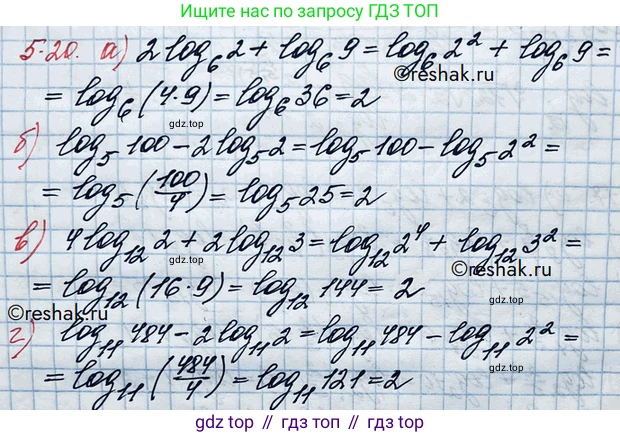 Ищите нас по запросу ГДЗ ТОП
5.20. а) 2 log₆ 2 + log₆ 9 = log₆ 2² + log₆ 9 =
©reshak.ru
= log₆ (4·9) = log₆ 36 = 2
gdz.top
б) log₅ 100 − 2 log₅ 2 = log₅ 100 − log₅ 2² =
= log₅ (100/4) = log₅ 25 = 2
gdz.top
в) 4 log₁₂ 2 + 2 log₁₂ 3 = log₁₂ 2⁴ + log₁₂ 3² =
©reshak.ru
= log₁₂ (16·9) = log₁₂ 144 = 2
gdz.top
©reshak.ru
г) log₁₁ 484 − 2 log₁₁ 2 = log₁₁ 484 − log₁₁ 2² =
= log₁₁ (484/4) = log₁₁ 121 = 2
gdz.top
gdz top // гдз топ // gdz.top